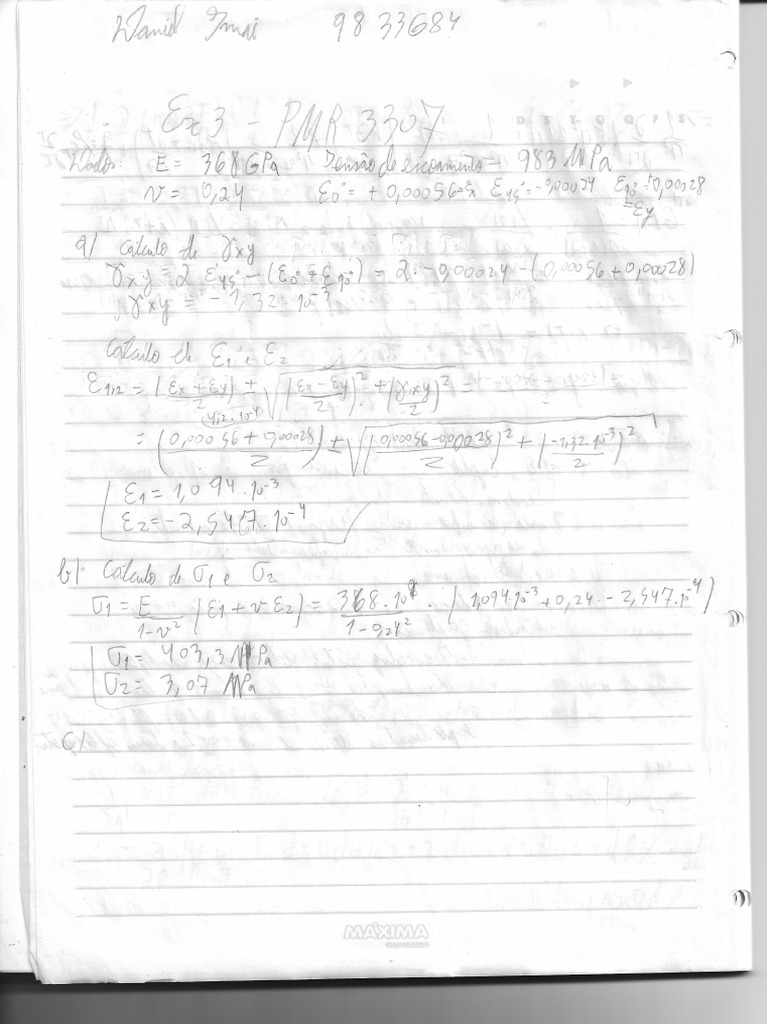 Daniel Imai 9833684
Ex 3 - PMR 3307
Dados: E = 368 GPa Tensão de escoamento - 983 MPa
ν = 0,24 ε0° = + 0,00056 = εx ε45° = -0,00024 ε90° = +0,00028 = εy
a) Cálculo de γxy
γxy = 2 ε45° - (ε0° + ε90°) = 2 · -0,00024 - (0,00056 + 0,00028)
γxy = - 1,32 · 10^-3
Cálculo de ε1 e ε2
ε1,2 = ((εx + εy)/2) ± √(((εx - εy)/2)^2 + (γxy/2)^2) =
4,2 · 10^-4
= ((0,00056 + 0,00028)/2) ± √(((0,00056 - 0,00028)/2)^2 + ((-1,32 · 10^-3)/2)^2)
ε1 = 1,094 · 10^-3
ε2 = -2,547 · 10^-4
b) Cálculo de σ1 e σ2
σ1 = E/(1-ν^2) (ε1 + ν ε2) = (368 · 10^9)/(1 - 0,24^2) · (1,094 · 10^-3 + 0,24 · -2,547 · 10^-4)
σ1 = 403,3 MPa
σ2 = 3,07 MPa
c)
MÁXIMA